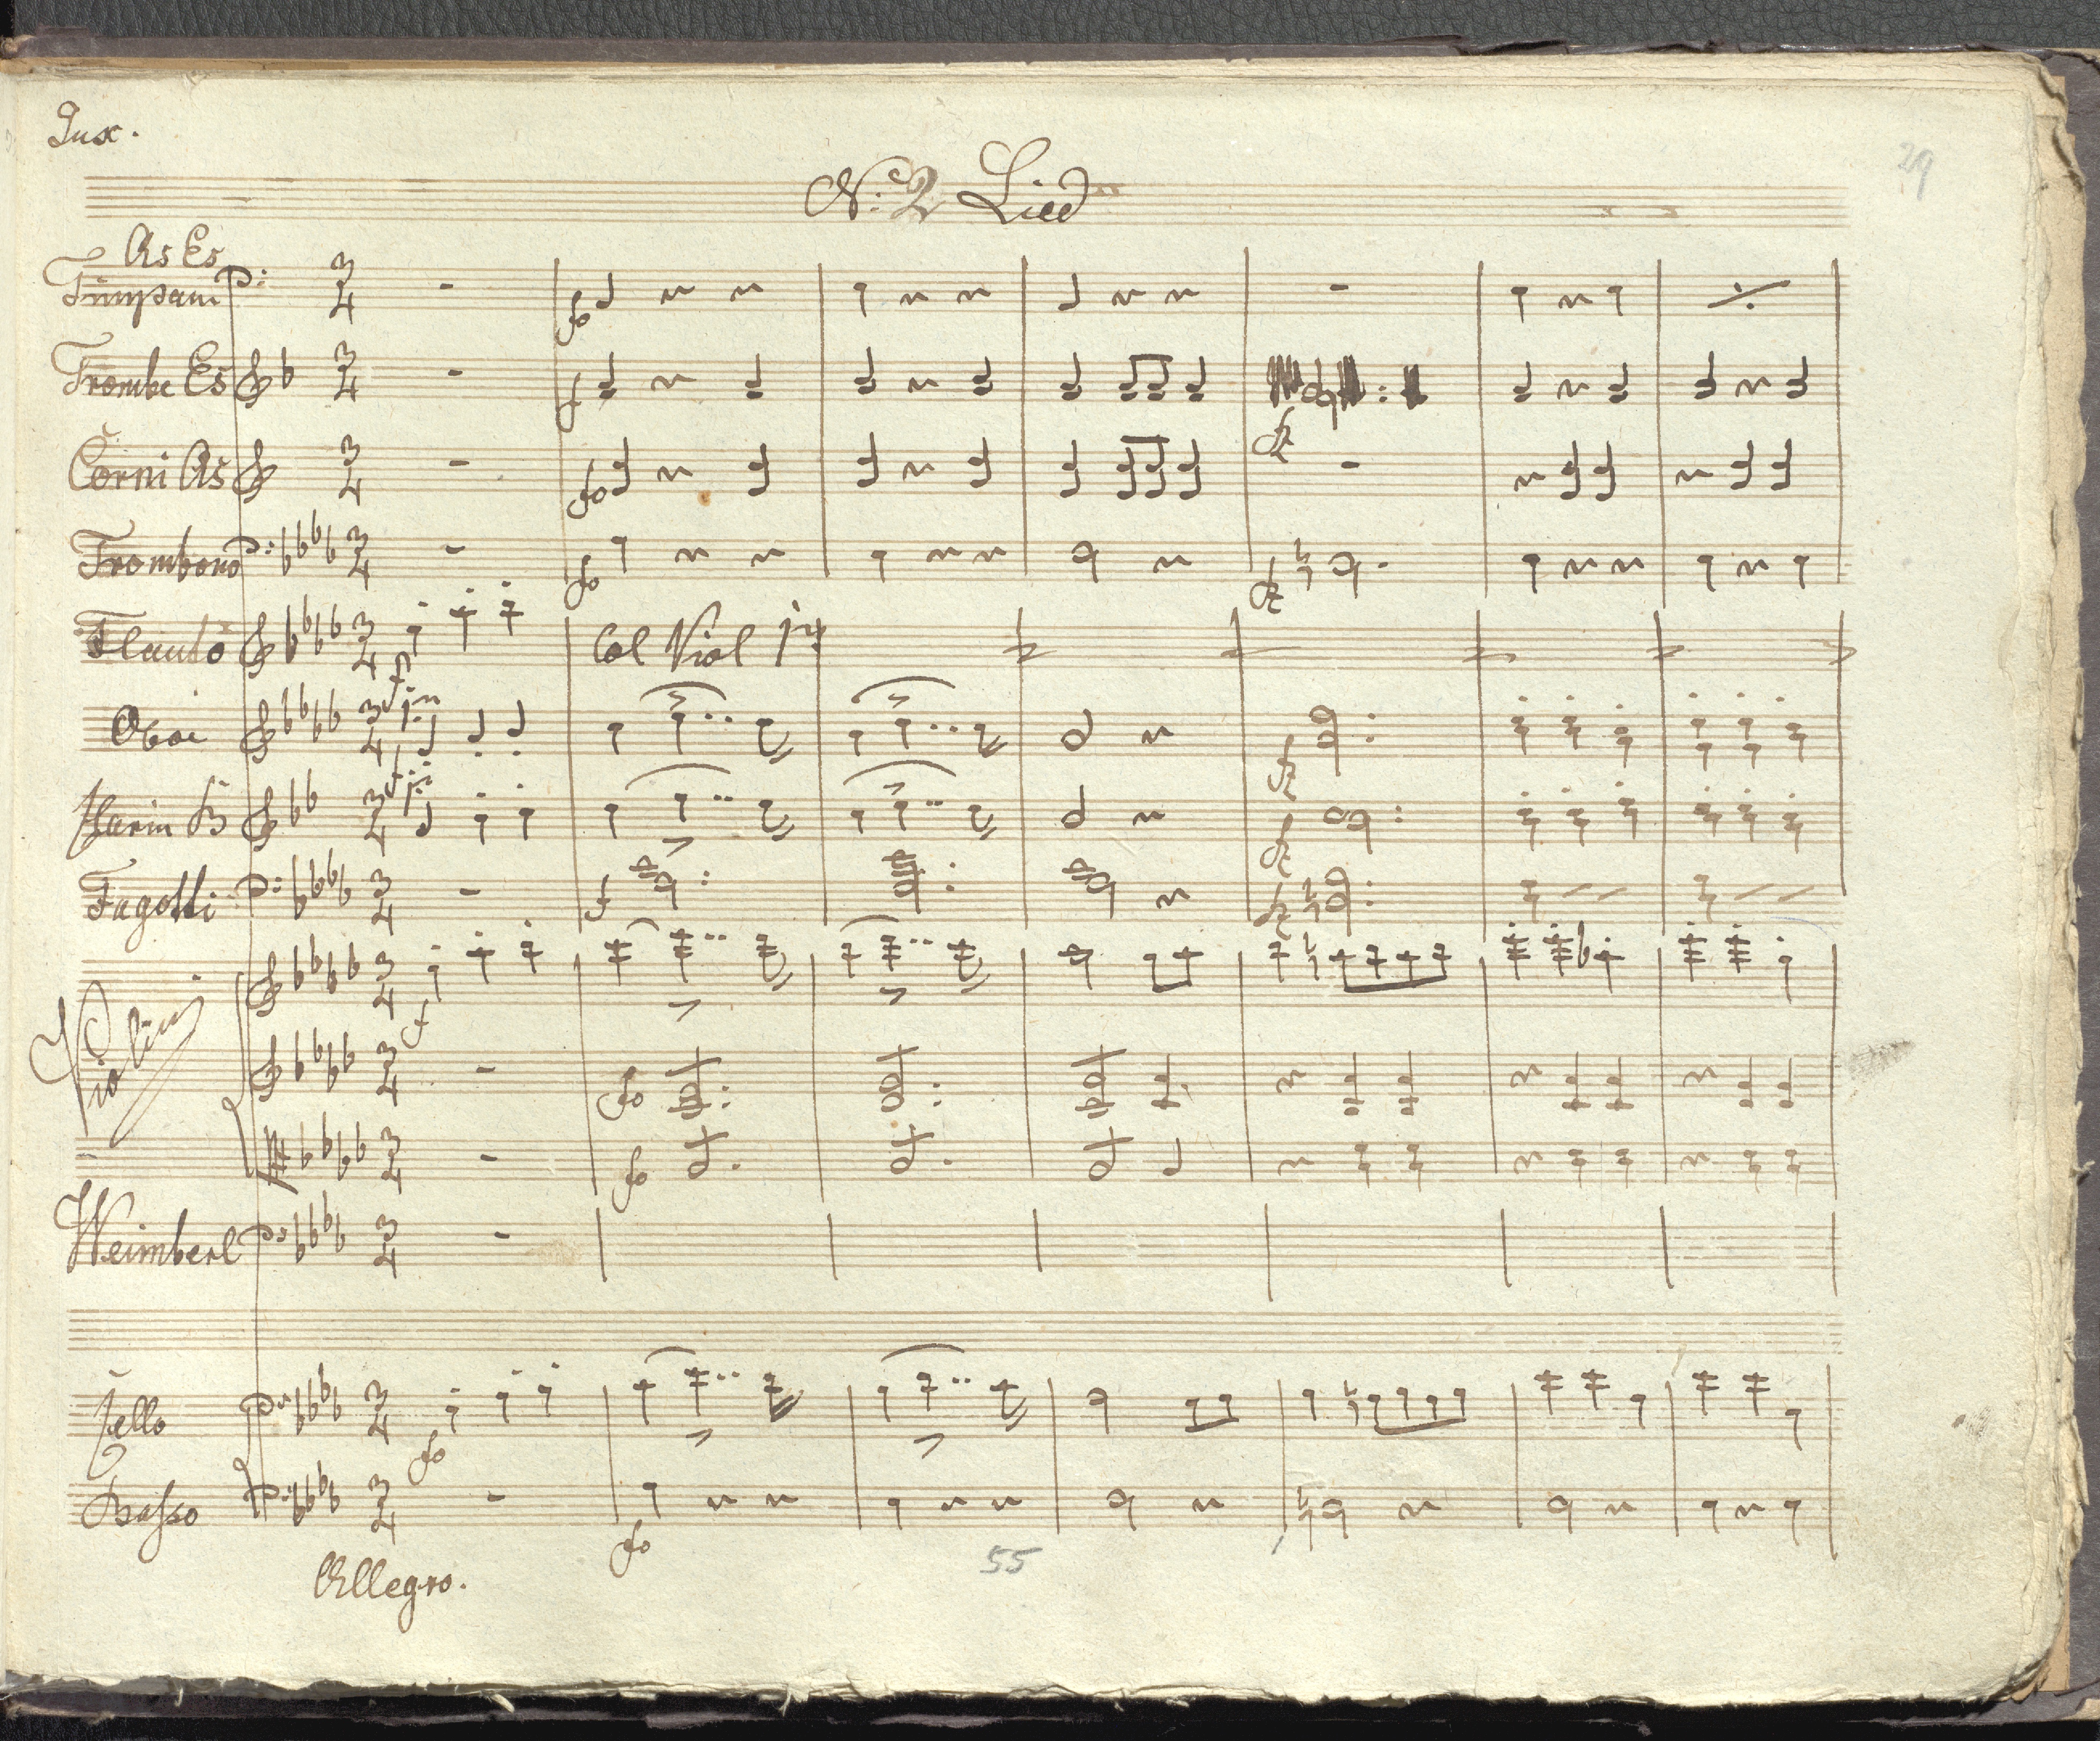 Jux.
29
No: 2 Lied
As Es
Timpani
Trombe Es
Corni As
Trombono
Flauto
Col Viol 1mo
Oboi
Clarin B
Fagotti
Violini
Weimberl
Cello
Basso
Allegro.
55